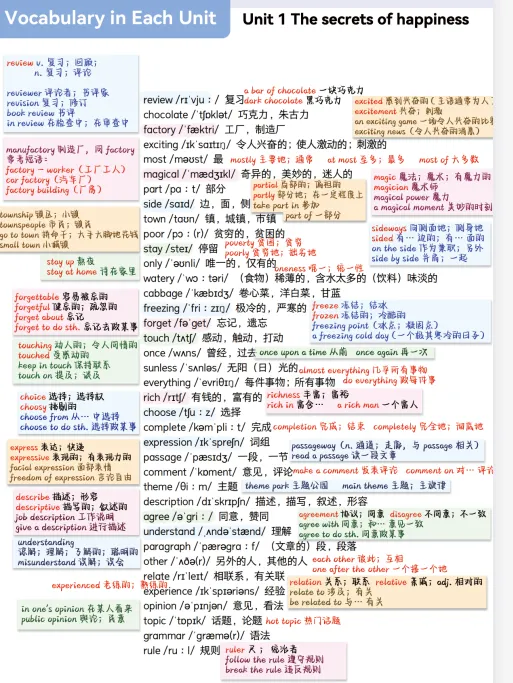 Vocabulary in Each Unit
Unit 1 The secrets of happiness
review v. 复习；回顾；
n. 复习；评论
reviewer 评论者；书评家
revision 复习；修订
book review 书评
in review 在检查中；在审查中
manufactory 制造厂，同 factory
常考短语：
factory → worker（工厂工人）
car factory（汽车厂）
factory building（厂房）
township 镇区；小镇
townspeople 市民；镇民
go to town 到市里；大手大脚地花钱
small town 小城镇
stay up 熬夜
stay at home 待在家里
forgettable 容易被忘的
forgetful 健忘的；疏忽的
forget about 忘记
forget to do sth. 忘记去做某事
touching 动人的；令人同情的
touched 受感动的
keep in touch 保持联系
touch on 提及；谈及
choice 选择；选择权
choosy 挑剔的
choose from 从… 中选择
choose to do sth. 选择做某事
express 表达；快递
expressive 表现的；有表现力的
facial expression 面部表情
freedom of expression 言论自由
describe 描述；形容
descriptive 描写的；叙述的
job description 工作说明
give a description 进行描述
understanding
谅解；理解；了解的；聪明的
misunderstand 误解；误会
experienced 老练的；熟练的
in one's opinion 在某人看来
public opinion 舆论；民意
a bar of chocolate 一块巧克力
review /rɪˈvjuː/ 复习 dark chocolate 黑巧克力
chocolate /ˈtʃɒklət/ 巧克力，朱古力
factory /ˈfæktri/ 工厂，制造厂
exciting /ɪkˈsaɪtɪŋ/ 令人兴奋的；使人激动的；刺激的
most /məʊst/ 最 mostly 主要地；通常 at most 至多；最多 most of 大多数
magical /ˈmædʒɪkl/ 奇异的，美妙的，迷人的
part /pɑːt/ 部分 partial 局部的；偏袒的
partly 部分地；在一定程度上
side /saɪd/ 边，面，侧 take part in 参加
town /taʊn/ 镇，城镇，市镇 part of 一部分
poor /pɔː/ 贫穷的，贫困的
stay /steɪ/ 停留 poverty 贫困；贫穷
poorly 贫穷地；贫乏地
only /ˈəʊnli/ 唯一的，仅有的
oneness 唯一；统一性
watery /ˈwɔːtəri/ （食物）稀薄的，含水太多的（饮料）味淡的
cabbage /ˈkæbɪdʒ/ 卷心菜，洋白菜，甘蓝
freezing /ˈfriːzɪŋ/ 极冷的，严寒的
forget /fəˈget/ 忘记，遗忘
touch /tʌtʃ/ 感动，触动，打动
once /wʌns/ 曾经，过去 once upon a time 从前 once again 再一次
sunless /ˈsʌnləs/ 无阳（日）光的 almost everything 几乎所有事物
everything /ˈevriθɪŋ/ 每件事物；所有事物 do everything 做每件事
rich /rɪtʃ/ 有钱的，富有的 richness 丰富；富裕
rich in 富含… a rich man 一个富人
choose /tʃuːz/ 选择
complete /kəmˈpliːt/ 完成 completion 完成；结束 completely 完全地；彻底地
expression /ɪkˈspreʃn/ 词组
passage /ˈpæsɪdʒ/ 一段，一节 passageway （n. 通道；走廊，与 passage 相关）
read a passage 读一段文章
comment /ˈkɒment/ 意见，评论 make a comment 发表评论 comment on 对… 评论
theme /θiːm/ 主题 theme park 主题公园 main theme 主题；主旋律
description /dɪˈskrɪpʃn/ 描述，描写，叙述，形容
agree /əˈgriː/ 同意，赞同 agreement 协议；同意 disagree 不同意；不一致
agree with 同意；和… 意见一致
agree to do sth. 同意做某事
understand /ˌʌndəˈstænd/ 理解
paragraph /ˈpærəgrɑːf/ （文章的）段，段落
other /ˈʌðə(r)/ 另外的人，其他的人 each other 彼此；互相
one after the other 一个接一个地
relate /rɪˈleɪt/ 相联系，有关联
experience /ɪkˈspɪəriəns/ 经验 relation 关系；联系 relative 亲戚；adj. 相对的
relate to 涉及；有关
be related to 与… 有关
opinion /əˈpɪnjən/ 意见，看法
topic /ˈtɒpɪk/ 话题，论题 hot topic 热门话题
grammar /ˈgræmə(r)/ 语法
rule /ruːl/ 规则 ruler 尺；统治者
follow the rule 遵守规则
break the rule 违反规则
excited 感到兴奋的（主语通常为人）
excitement 兴奋；刺激
an exciting game 一场令人兴奋的比赛
exciting news（令人兴奋的消息）
magic 魔法；魔术；有魔力的
magician 魔术师
magical power 魔力
a magical moment 美妙的时刻
sideways 向侧面地；侧身地
sided 有… 边的；有… 面的
on the side 作为兼职；另外
side by side 并肩；一起
freeze 冻结；结冰
frozen 冻结的；冷酷的
freezing point（冰点；凝固点）
a freezing cold day（一个极其寒冷的日子）